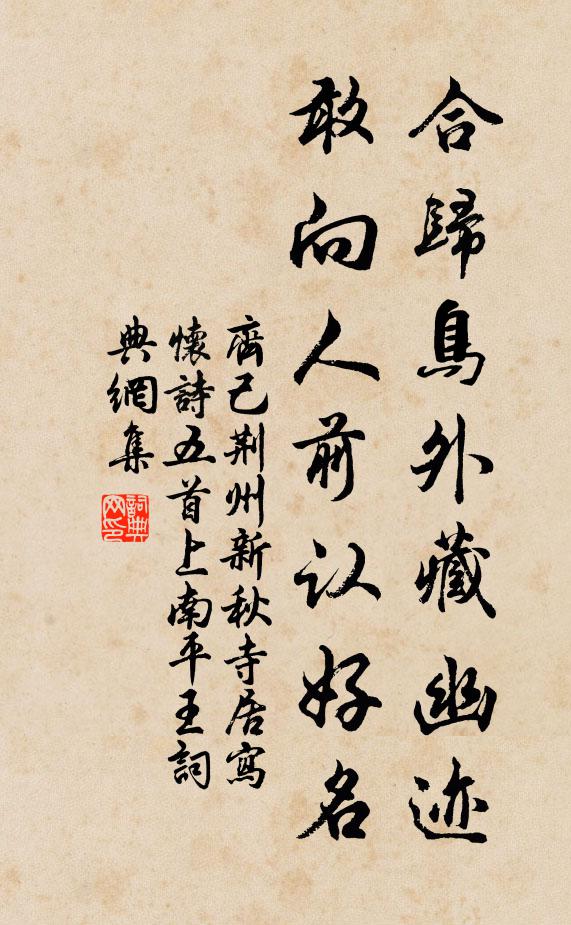 合歸鳥外藏幽迹
敢向人前认好名
齊己荆州新秋寺居寫
懷詩五首上南平王詞
典網集
詞典
网印